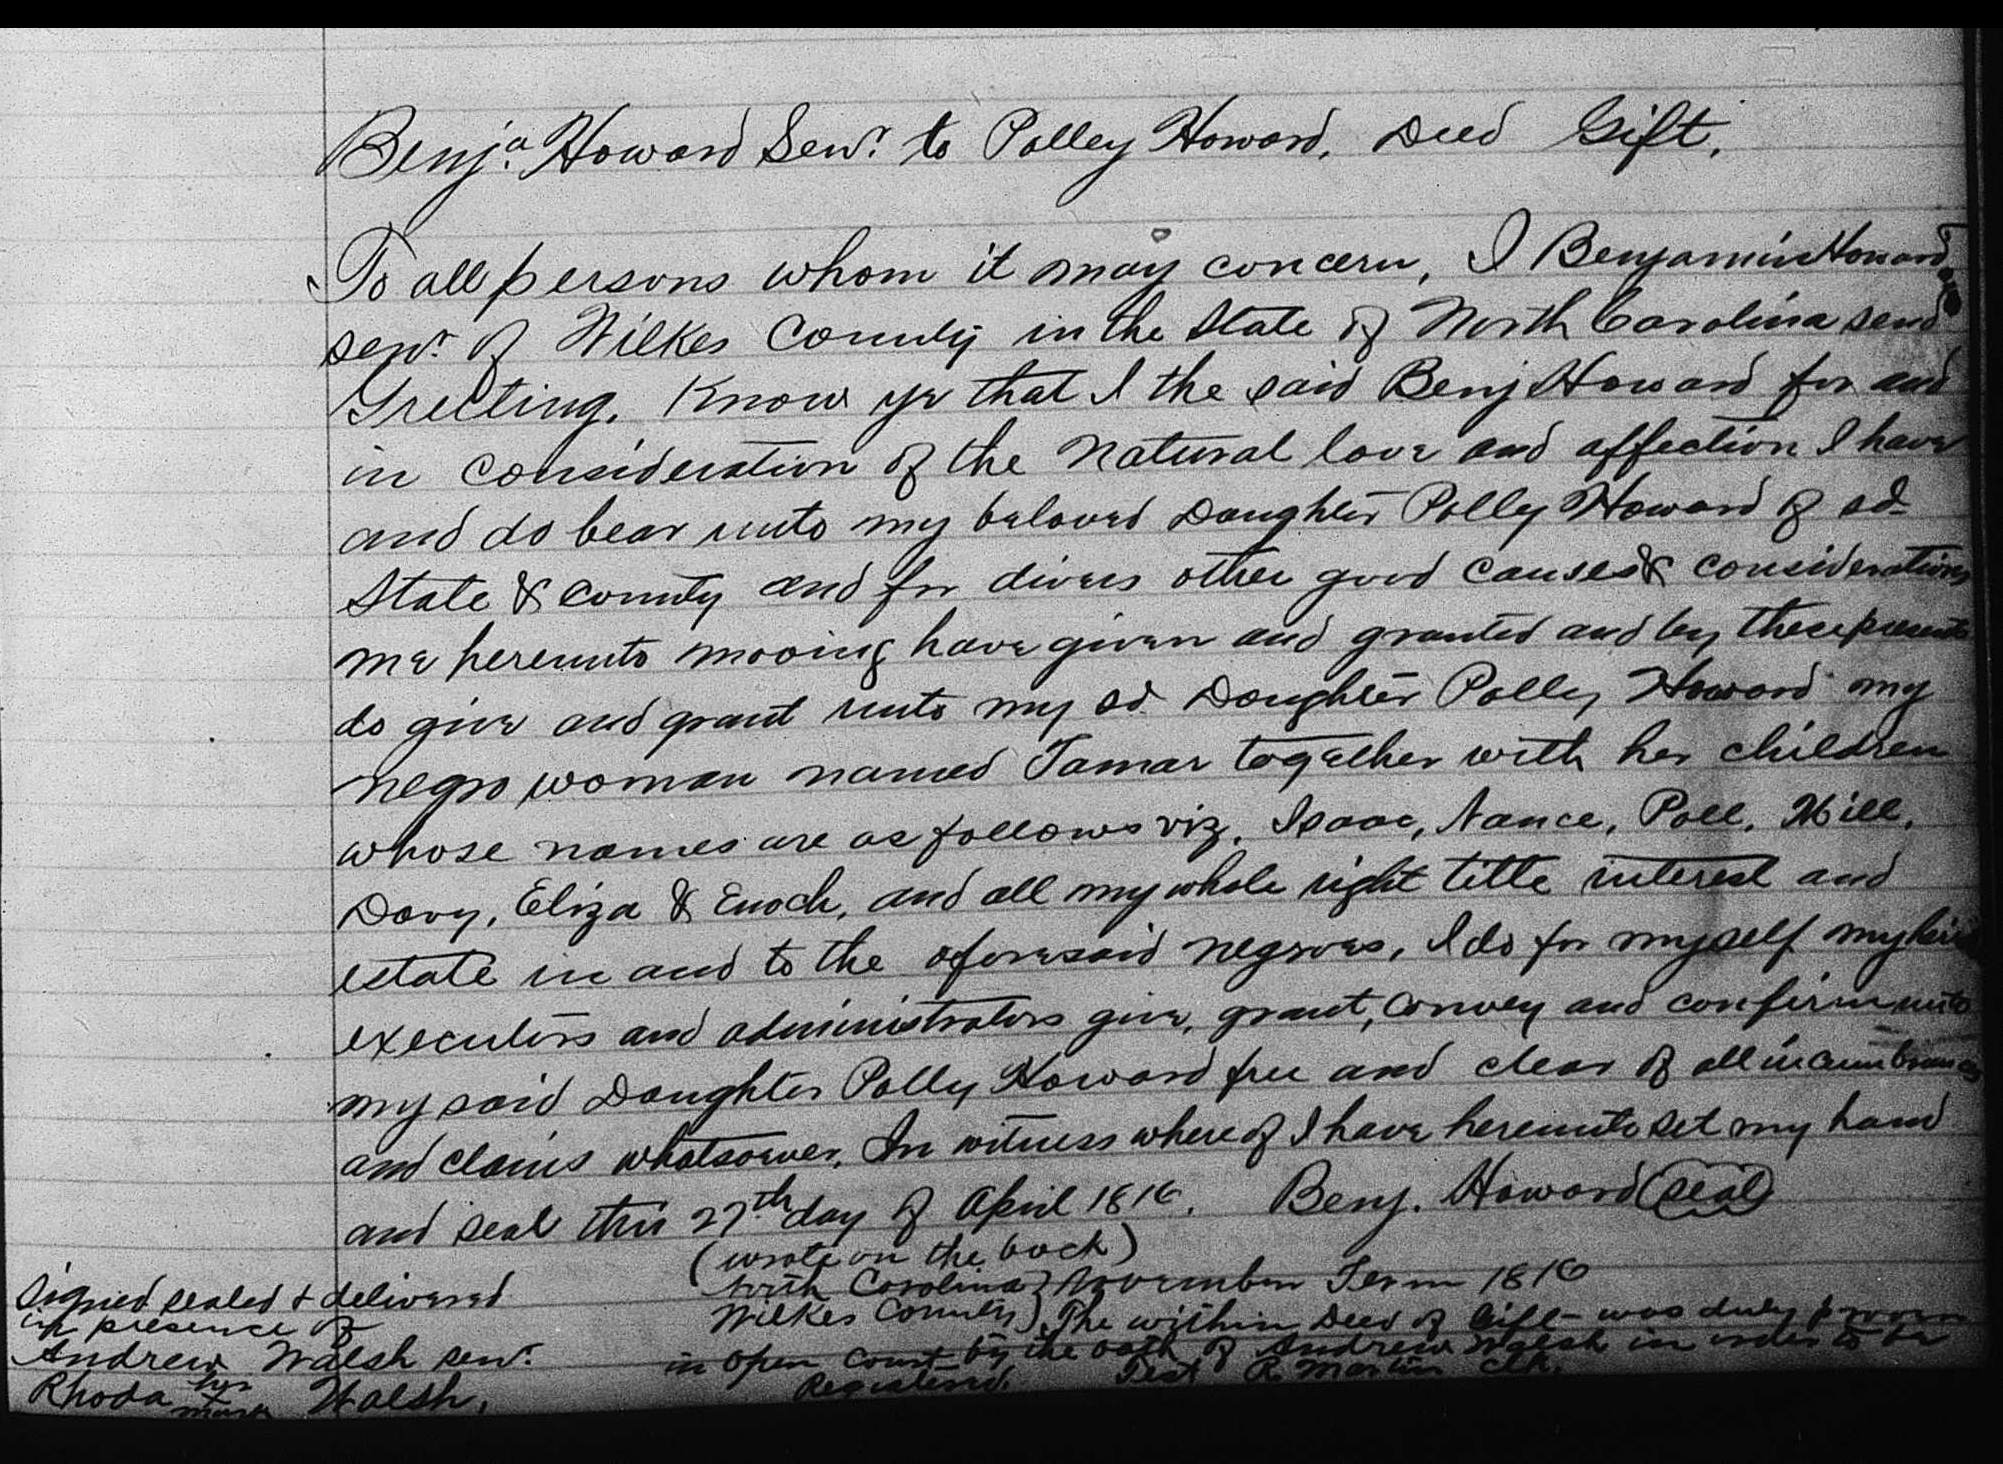 Benja. Howard Senr. to Polley Howard. Deed Gift.
To all persons whom it may concern, I Benjamin Howard
senr. of Wilkes County in the State of North Carolina send
Greeting. Know ye that I the said Benj Howard for and
in consideration of the natural love and affection I have
and do bear unto my beloved Daughter Polly Howard of sd
State & County and for divers other good causes & considerations
me hereunto mooving have given and granted and by these presents
do give and grant unto my sd Daughter Polly Howard my
negro woman named Tamar together with her children
whose names are as follows viz. Isaac, Nance, Poll,
Davy, Eliza & Enoch, and all my whole right title interest and
estate in and to the aforesaid negroes, I do for myself my heirs
executors and administrators give, grant, convey and confirm unto
my said Daughter Polly Howard free and clear of all incumbrances
and claims whatsoever. In witness where of I have hereunto set my hand
and seal this 27th day of April 1816. Benj. Howard (seal)
(wrote on the back)
North Carolina } November Term 1816
Wilkes County } The within Deed of Gift was duly proven
in open court by the oath of Andrew Walsh in order to be
Registered. Test R. Martin Clk.
Signed sealed & delivered
in presence of
Andrew Walsh senr.
Rhoda her x mark Walsh.